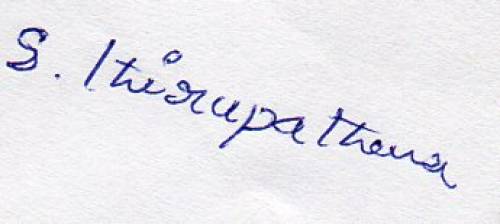 S. Thirupathena